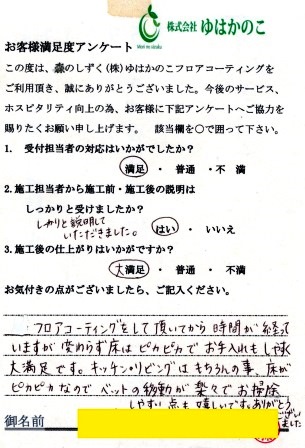 株式会社 ゆはかのこ
Mori no sizuku
お客様満足度アンケート
この度は、森のしずく(株)ゆはかのこフロアコーティングを
ご利用頂き、誠にありがとうございました。今後のサービス、
ホスピタリティ向上の為、お客様に下記アンケートへご協力を
賜りたくお願い申し上げます。 該当欄を○で囲って下さい。
1. 受付担当者の対応はいかがでしたか?
満足 ・ 普通 ・不 満
2.施工担当者から施工前・施工後の説明は
しっかりと受けましたか?
しっかりと説明して
いただきました。
はい ・ いいえ
3.施工後の仕上がりはいかがですか?
大満足 ・ 普通 ・ 不満
お気付きの点がございましたら、ご記入ください。
フロアコーティングをして頂いてから時間が経って
いますが変わらず床はピカピカでお手入れもしやすく
大満足です。キッチン・リビングはもちろんの事、床が
ピカピカなのでベットの移動が楽々でお掃除
しやすい点も嬉しいです。ありがとう
ござい
ました
御名前